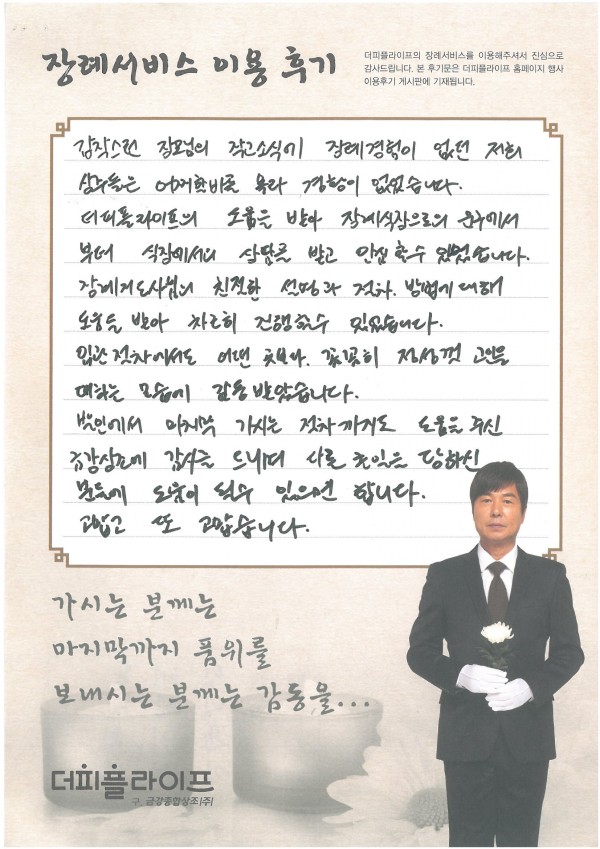 장례서비스 이용 후기
더피플라이프의 장례서비스를 이용해주셔서 진심으로
감사드립니다. 본 후기문은 더피플라이프 홈페이지 행사
이용후기 게시판에 기재됩니다.
갑작스런 장모님의 작고소식에 장례경험이 없던 저희
식구들은 어찌할바를 몰라 경황이 없었습니다.
더피플라이프의 도움을 받아 장례식장으로의 운구에서
부터 식장에서의 상담을 받고 안심 할수 있었습니다.
장례지도사님의 친절한 설명과 절차. 방법에 대해
도움을 받아 차분히 진행할수 있었습니다.
입관 절차에서도 어떤 곳보다. 꼿꼿히 정성껏 고인을
대하는 모습에 감동 받았습니다.
발인에서 마지막 가시는 절차까지도 도움을 주신
금강상조에 감사를 드리며 다른 큰일을 당하신
분들에 도움이 될수 있으면 합니다.
고맙고 또 고맙습니다.
가시는 분께는
마지막까지 품위를
보내시는 분께는 감동을...
더피플라이프
구. 금강종합상조(주)